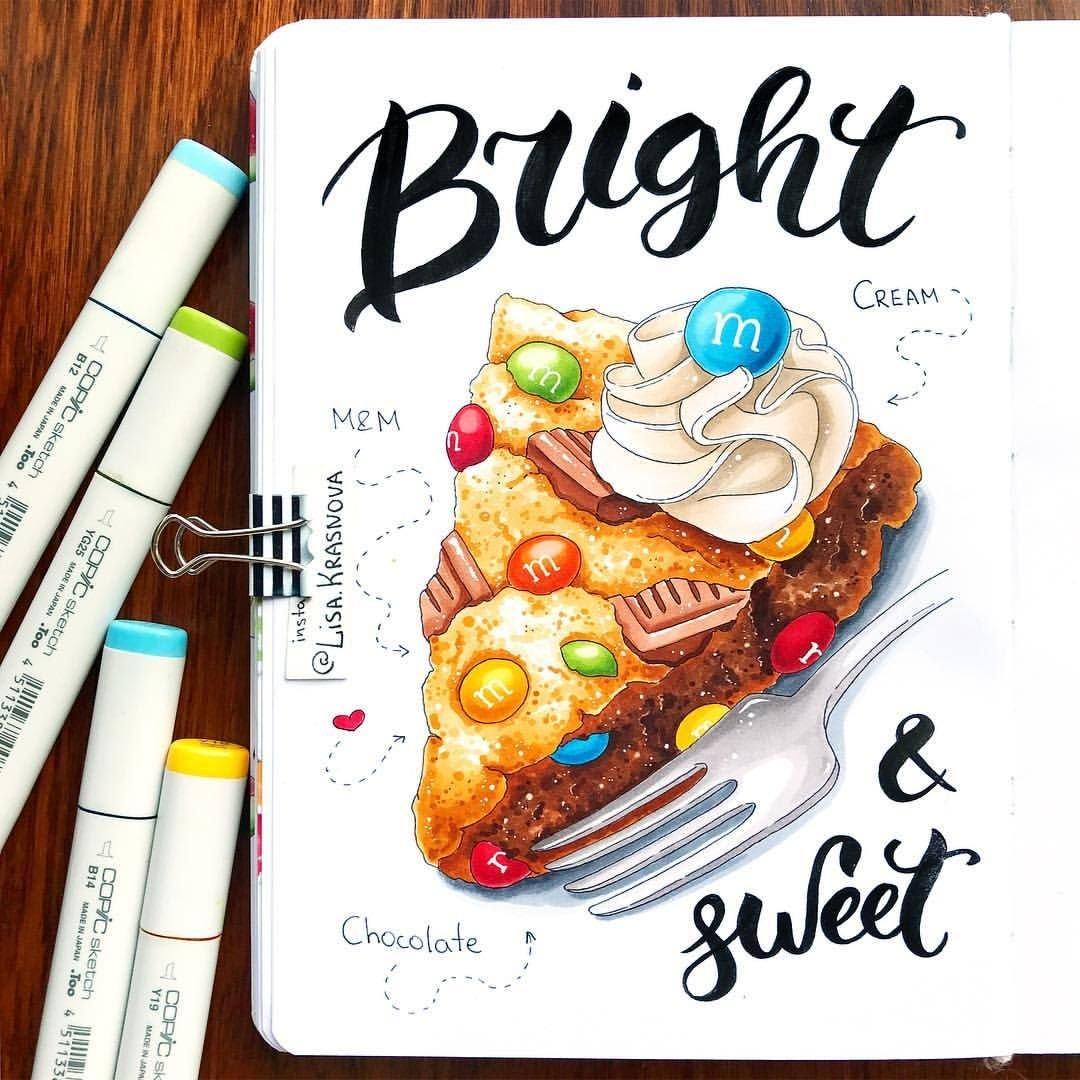 Bright
CREAM
M&M
insta
@LISA.KRASNOVA
m
m
m
m
m
Chocolate
&
sweet
B12
COPIC sketch
MADE IN JAPAN .Too
YG25
COPIC sketch
MADE IN JAPAN .Too
B14
COPIC sketch
MADE IN JAPAN .Too
Y19
COPIC sketch
MADE IN JAPAN